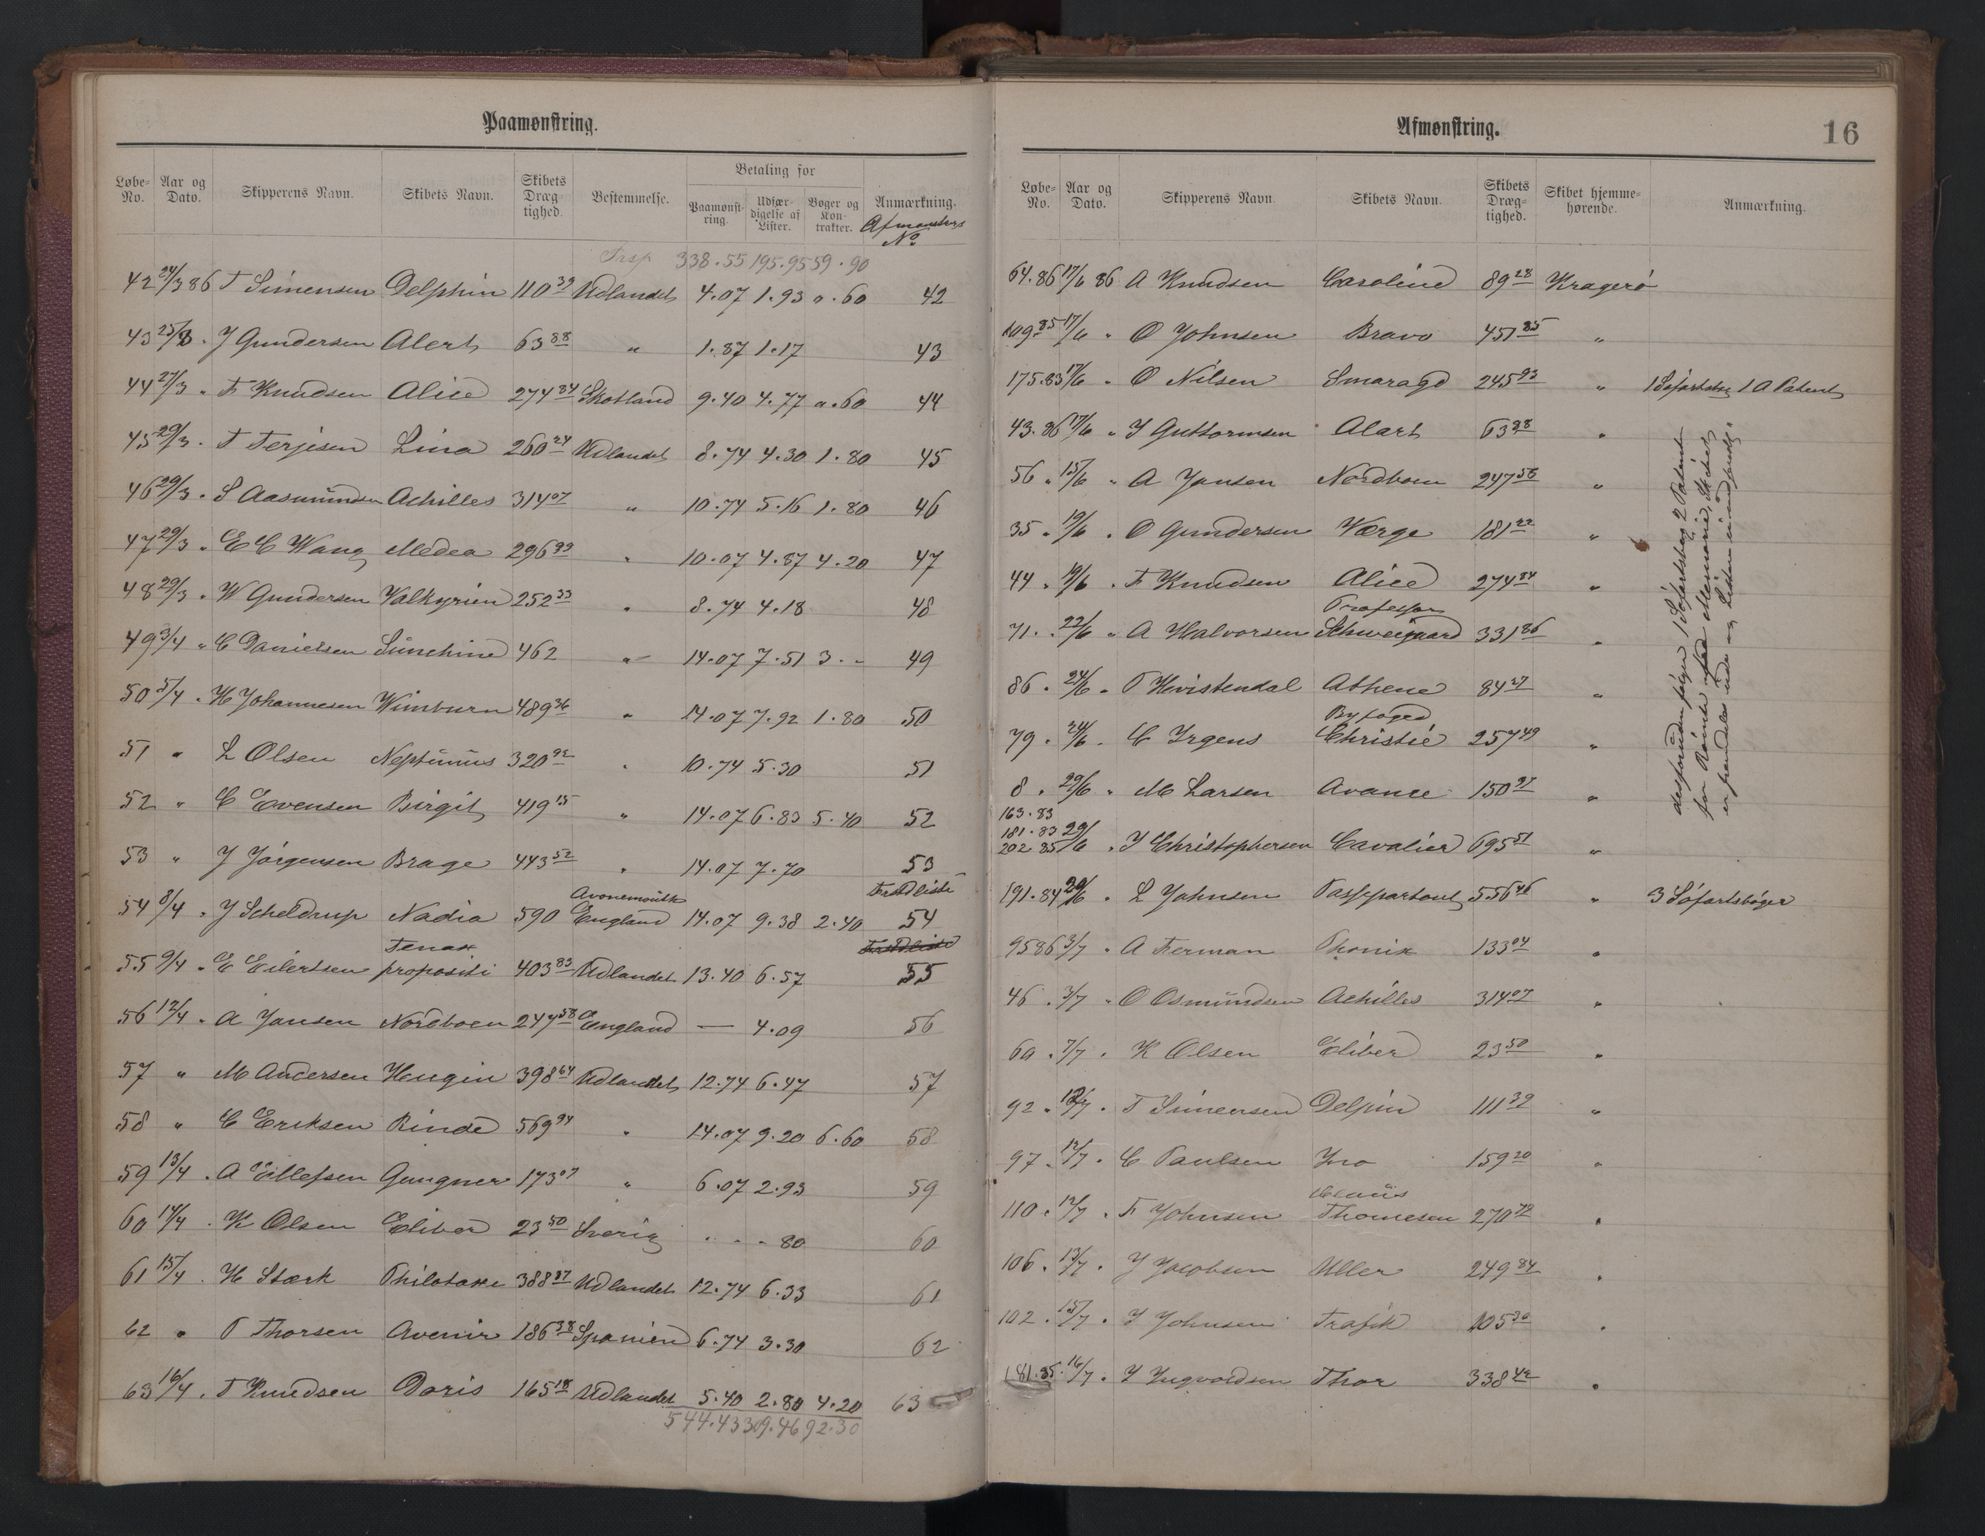 Paamønstring.
Løbe-No. Aar og Dato. Skipperens Navn. Skibets Navn. Skibets Dræg-tighed. Bestemmelse. Betaling for Paamønst-ring. Udfær-digelse af Lister. Bøger og Kon-trakter. Anmærkning.
Afmønstrgs No
Trsp 338.55 195.95 59.90
42 24/3 86 T Simensen Delphin 110 39 Udlandet 4.07 1.93 0.60 42
43 25/3 " J Gundersen Alert 63 88 " 1.87 1.17 43
44 27/3 " F Knudsen Alice 274 84 Skotland 9.40 4.77 0.60 44
45 29/3 " T Terjesen Lina 260 24 Udlandet 8.74 4.30 1.80 45
46 29/3 " S Aasmundsen Achilles 314 07 " 10.74 5.16 1.80 46
47 29/3 " E C Wang Medea 296 99 " 10.07 4.87 4.20 47
48 29/3 " W Gundersen Valkyrien 252 33 " 8.74 4.18 48
49 3/4 " C Danielsen Sunshine 462 " 14.07 7.51 3.- 49
50 5/4 " H Johannesen Wimburn 489 36 " 14.07 7.92 1.80 50
51 " L Olsen Neptunus 320 92 " 10.74 5.30 51
52 " C Evensen Birgit 419 15 " 14.07 6.83 5.40 52
53 " J Jørgensen Brage 443 52 " 14.07 7.70 53
54 8/4 " J Scheldrup Nadia 590 Avonemouth England 14.07 9.38 2.40 Fredliste 54
55 9/4 " E Eilertsen Tenax propositi 403 83 Udlandet 13.40 6.57 Fredliste 55
56 12/4 " A Jansen Nordboen 247 58 England — 4.09 56
57 " M Andersen Heugin 398 64 Udlandet 12.74 6.47 57
58 " C Eriksen Rinde 569 94 " 14.07 9.20 6.60 58
59 13/4 " A Ellefsen Gungner 173 07 " 6.07 2.93 59
60 14/4 " K Olsen Eliber 23 50 Sverig " " " 80 60
61 15/4 " H Stærk Philotaxe 388 37 Udlandet 12.74 6.33 61
62 " T Thorsen Avenir 186 38 Spanien 6.74 3.30 62
63 16/4 " T Knudsen Doris 165 18 Udlandet 5.40 2.80 4.20 63
544.43 309.46 92.30
Afmønstring.
16
Løbe-No. Aar og Dato. Skipperens Navn. Skibets Navn. Skibets Dræg-tighed. Skibet hjemme-hørende. Anmærkning.
64.86 17/6 86 A Knudsen Caroline 89 28 Kragerø
109.85 17/6 " O Johnsen Bravo 451 85 "
175.83 17/6 " O Nilsen Smaragd 245 93 " 1 Søfartsbg 1 A Patent
43.86 17/6 " J Guttormsen Alart 63 28 "
56 " 15/6 " A Jansen Nordboen 247 58 "
35 " 19/6 " O Gundersen Værge 181 22 "
44 " 19/6 " F Knudsen Alice 274 84 "
71 " 22/6 " A Halvorsen Professor Schweigaard 331 86 "
86 " 24/6 " T Hvistendal Athene 84 27 "
79 " 24/6 " C Irgens Byfoged Christie 257 49 "
8 " 29/6 " M Larsen Avance 150 97 "
163.83
181.83
202.85 29/6 " J Christophersen Cavalier 695 51 "
191.84 29/6 " L Johnsen Passepartout 556 46 " 3 Søfartsbøger
95 86 3/7 " A Ferman Phonix 133 04 "
46 " 3/7 " O Osmundsen Achilles 314 07 "
60 " 7/7 " K Olsen Eliber 23 50 "
92 " 12/7 " T Simensen Delpin 111 39 "
97 " 12/7 " C Paulsen Ino 159 20 "
110 " 12/7 " F Johnsen Claus Thomesen 270 72 "
106 " 13/7 " J Jacobsen Uller 249 84 "
102 " 15/7 " J Johnsen Trafik 105 30 "
181.85 16/7 " J Ingvordsen Thor 338 42 "
desforuden følger 1 Søfartsbog 2 Patenter
for Skibet